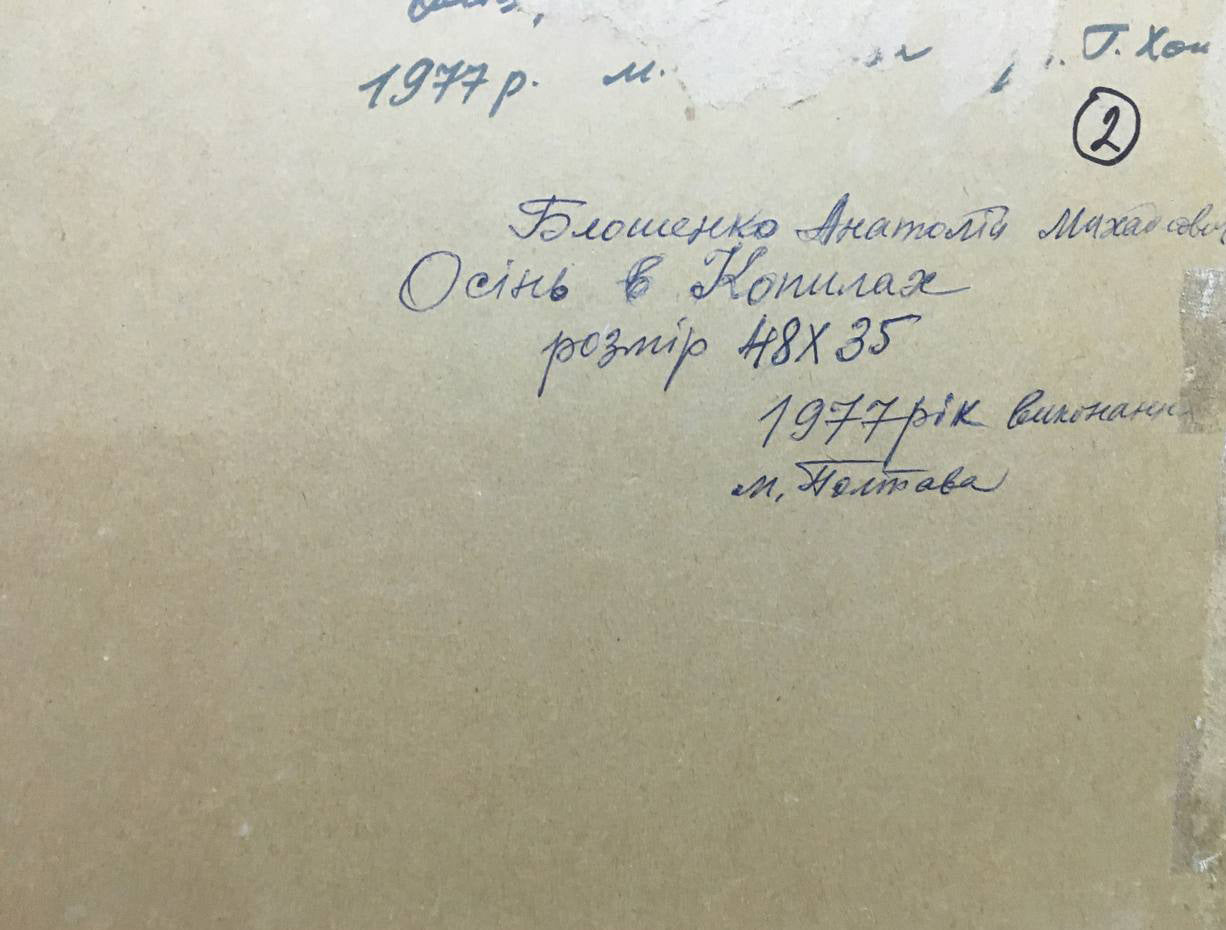 1977 р. м. Г. Хом
2
Блошенко Анатолій Михайлович
Осінь в Копилах
розмір 48Х35
1977 рік виконання
м. Полтава